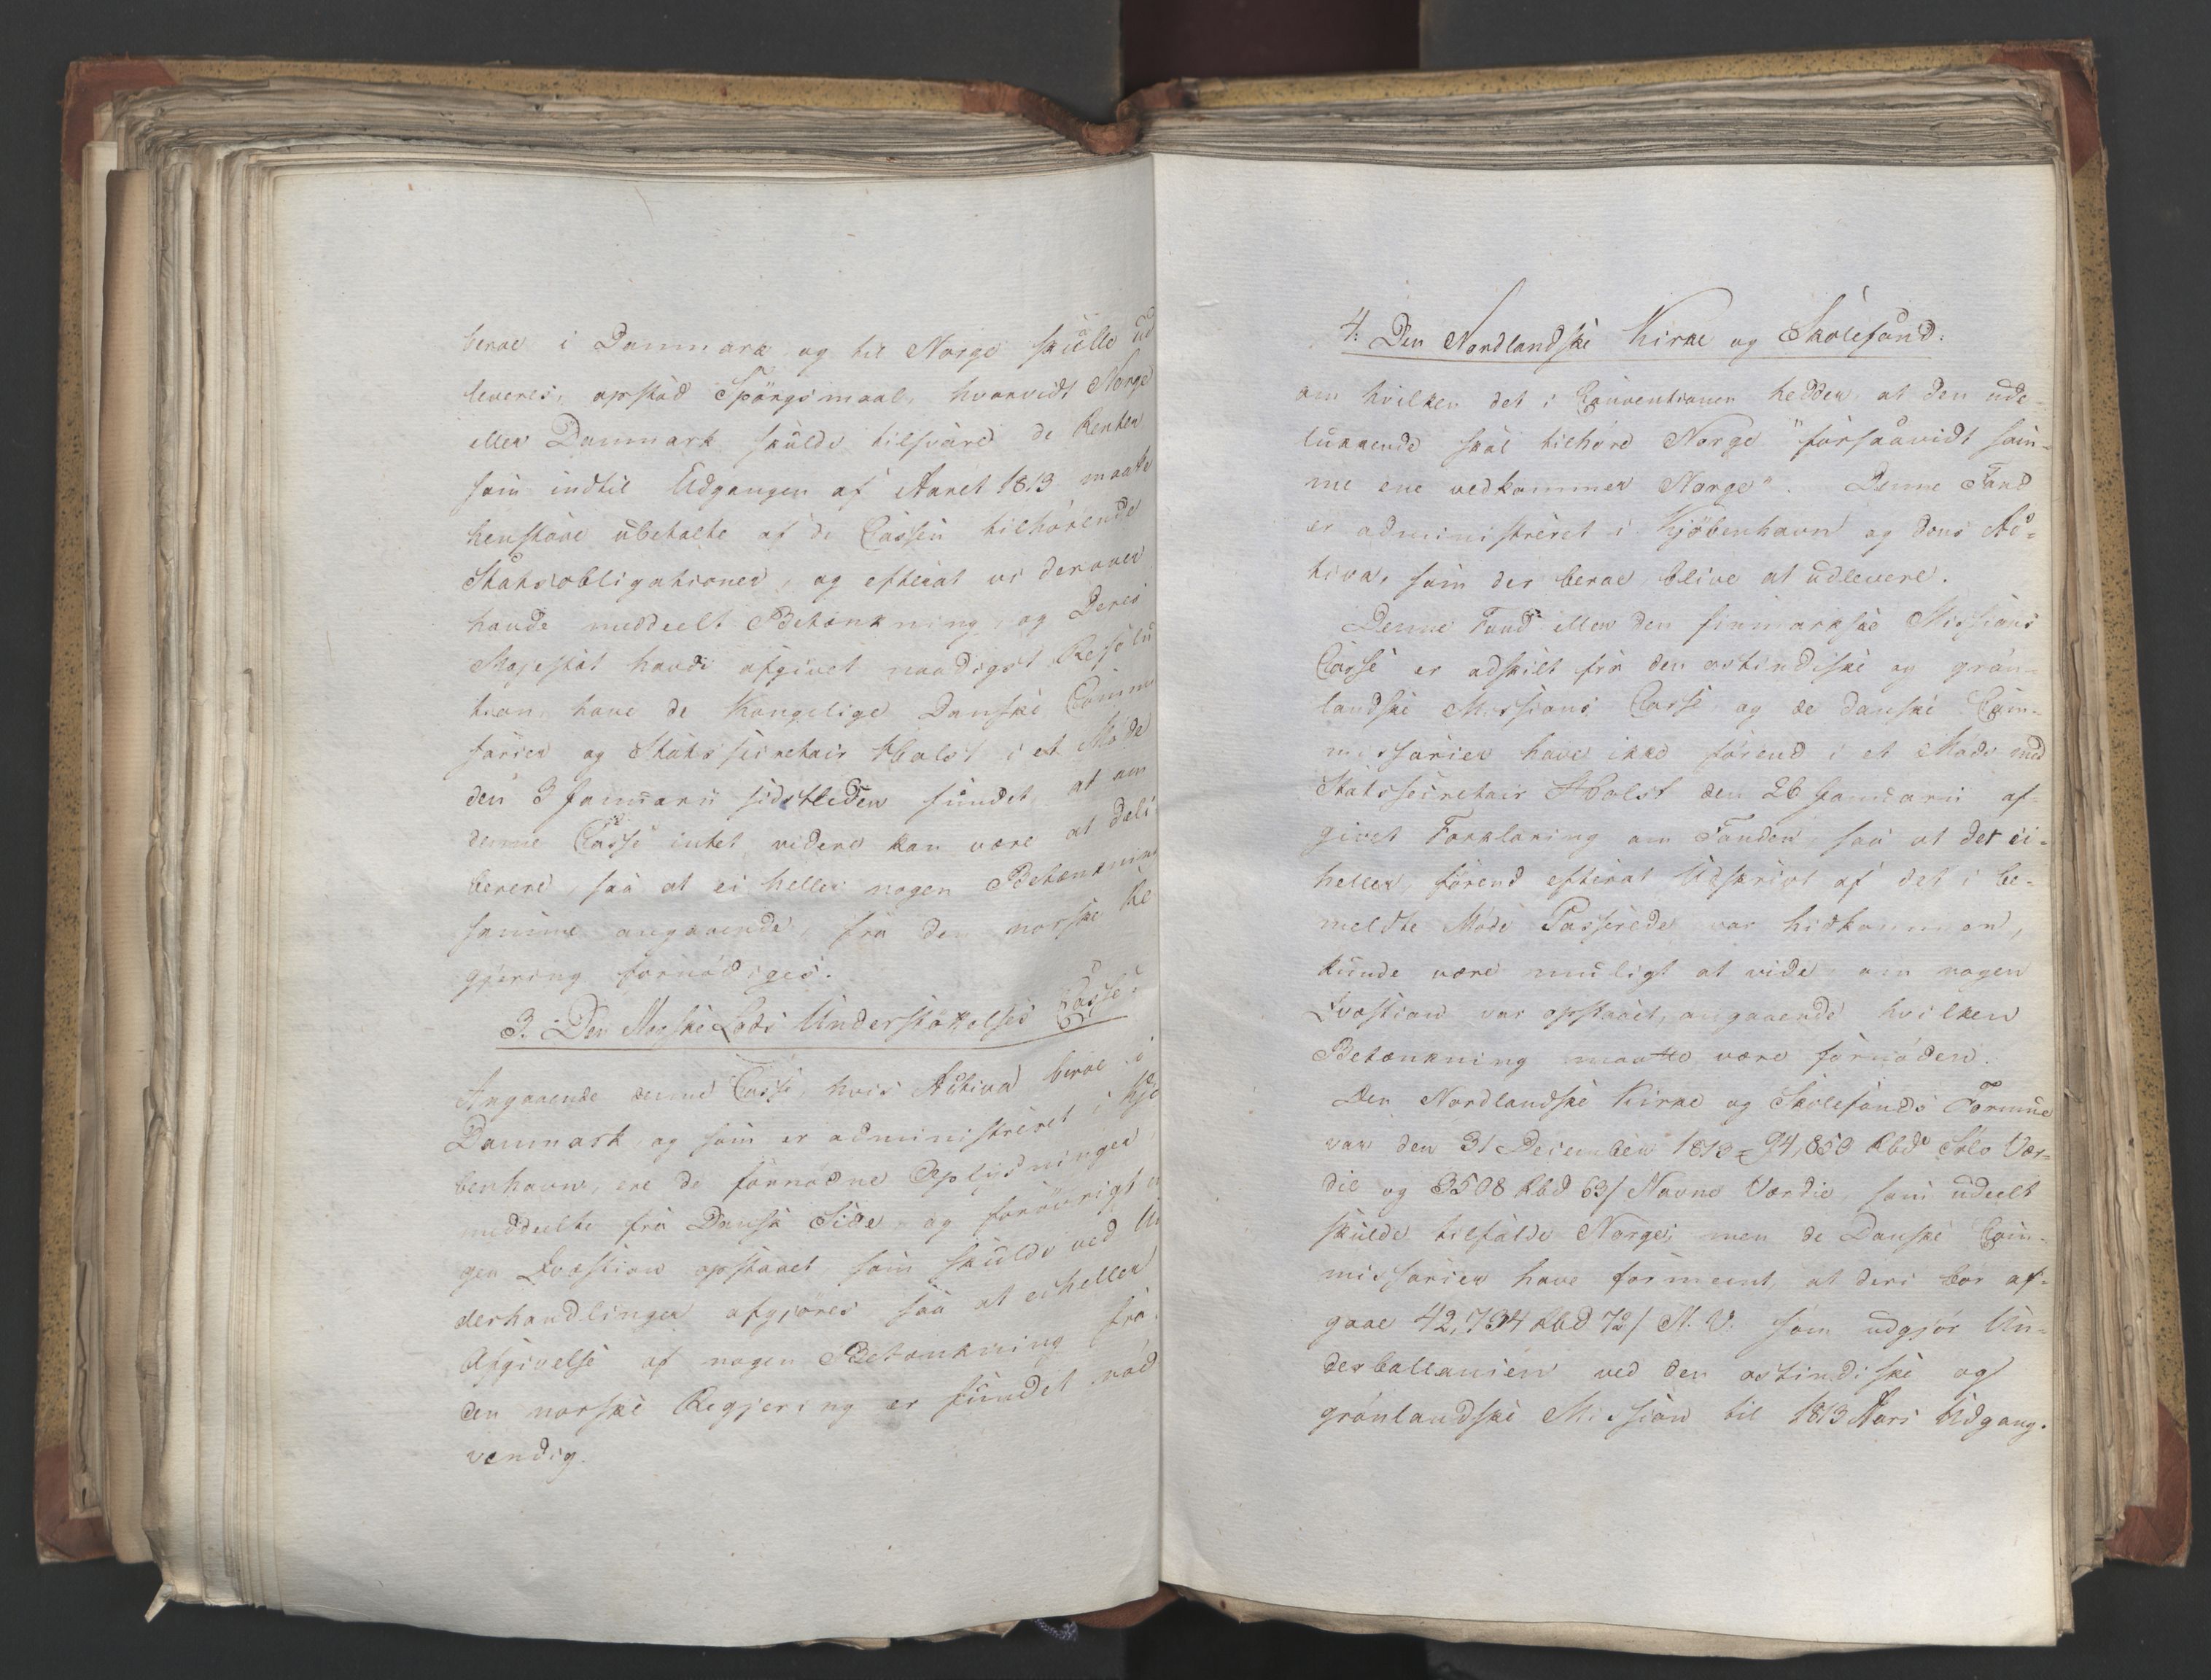 beroe i Danmark og til Norge skulle ud
leveres, opstod Spörgsmaal, hvorvidt Norge
eller Danmark skulde tilsvare de Renter
som indtil Udgangen af Aaret 1813 maatte
henstaae ubetalte af de Cassen tilhörende
Statsobligationer, og efterat vi derover
havde meddeelt Betænkning, og Deres
Majestæt havde afgivet naadigst Resolu
tion, have de Kongelige Danske Commis
sarier og Statssecretair Holst i et Möde
den 3 Januarii sidstleden fundet, at om
denne Casse intet videre kan være at deli
berere, saa at ei heller nogen Betænkning
samme angaaende, fra den norske Re
gjering fornödiges.
3. Den Norske Lods Understöttelses Casse:
Angaaende denne Casse, hvis Activa beroe i
Danmark og som er administreret i Kjö
benhavn, ere de fornödne Oplysninger
meddeelte fra Dansk Side, og forövrigt in
gen Qvæstion opstaaet som skulde ved Un
derhandlinger afgjöres saa at eiheller
Afgivelse af nogen Betænkning fra
den norske Regjering er fundet nöd
vendig.
4: Den Nordlandske Kirke og Skolefond:
om hvilken det i Conventionen hedder, at den ude-
lukkende skal tilhöre Norge "forsaavidt sam-
me ene vedkommer Norge". Denne Fond
er administreret i Kjöbenhavn og dens Ac-
tiva, som der beroe blive at udlevere.
Denne Fond eller den finmarkske Missions
Casse er adskilt fra den ostindiske og grön-
landske Missions Casse, og de danske Com-
missarier have ikke förend i et Möde med
Statssecretair Holst den 26 Januarii af-
givet Forklaring om Fonden, saa at det ei-
heller, förend efterat Udskrivt af det i be-
meldte Möde Passerede var hidkommen,
kunde være muligt at vide om nogen
Qvæstion var opstaaet, angaaende hvilken
Betænkning maatte være fornöden.
Den Nordlandske Kirke og Skolefonds Formue
var den 31 December 1813 = 94,850 Rbd Sölv Vær-
die og 3508 Rbd 63/ Navne Værdie, som udeelt
skulde tilfalde Norge, men de Danske Com-
missarier have formeent, at deri bör af-
gaae 42,734 Rbd 72/ N. V. som udgjör Un-
derballancen ved den ostindiske og
grönlandske Mission til 1813 Aars Udgang.